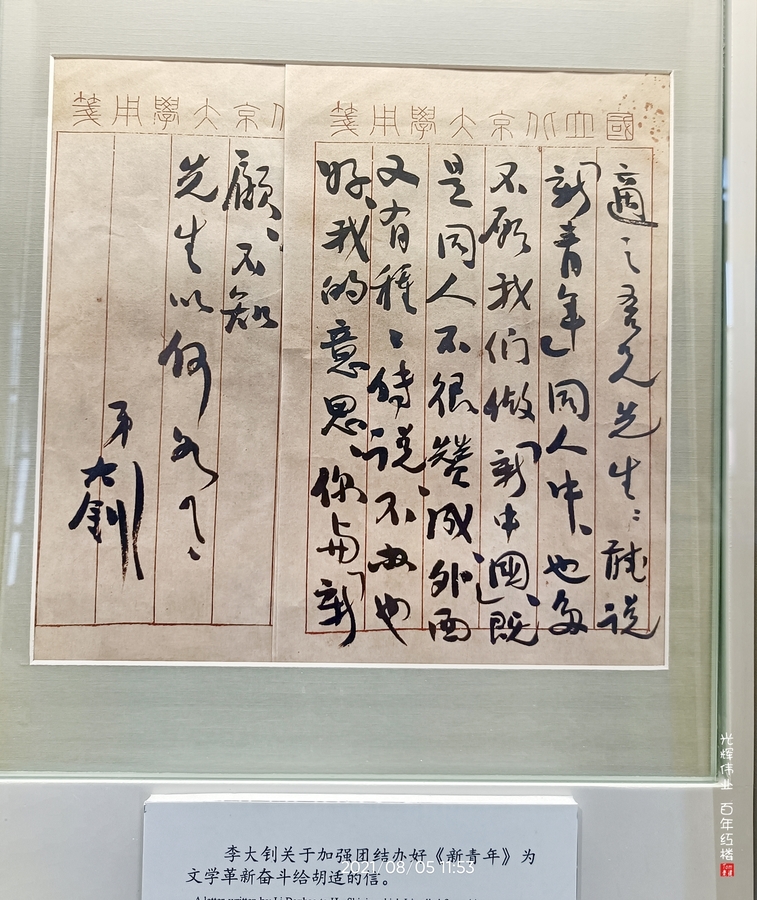 國立北京大學用箋
適之吾兄先生：聽說
「新青年」同人中、也多
不願我們做「新中國」。既
是同人不很贊成、外面
又有種々傳說、不办也
好、我的意思、你与「新
京大學用箋
顧、不知
先生以何如？
弟
大釗
李大钊关于加强团结办好《新青年》为
文学革新奋斗给胡适的信。
2021/08/05 11:53
光辉伟业 百年红楼